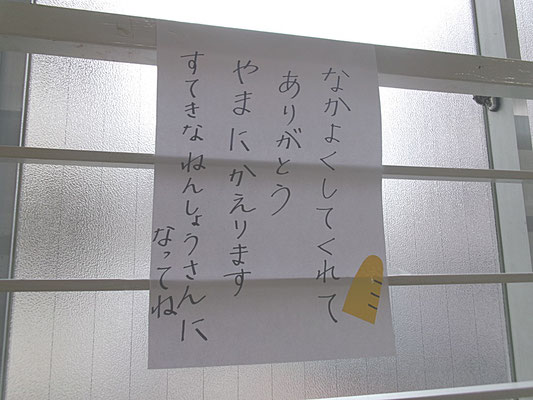 なかよくしてくれて
ありがとう
やまにかえります
すてきなねんしょうさんに
なってね